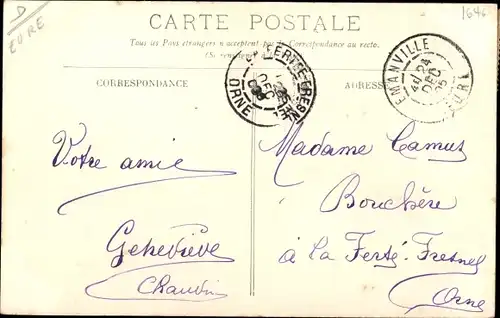 D
EURE
1646
CARTE POSTALE
Tous les Pays étrangers n'acceptent pas la Correspondance au recto.
CORRESPONDANCE
ADRESSE
LA FERTÉ-FRESNEL
DEC
ORNE
EMANVILLE
24
DEC
EURE
Votre amie
Geneviève
Chauvin
Madame Camus
Bouchère
à la Ferté-Fresnel
Orne